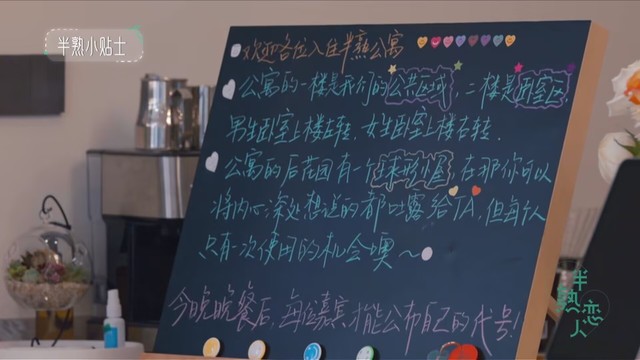 半熟小贴士
欢迎各位入住半熟公寓
公寓的一楼是我们的公共区域,二楼是卧室区,
男生卧室上楼左转,女生卧室上楼右转.
公寓的后花园有一个球形小屋,在那你可以
将内心深处想说的都吐露给TA,但每个人
只有一次使用的机会噢~
今晚晚餐后,每位嘉宾才能公布自己的代号!
半熟恋人